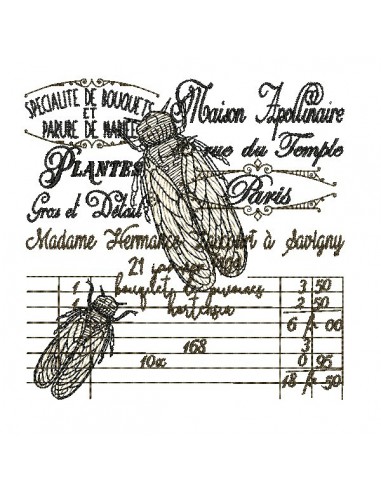 SPECIALITE DE BOUQUETS
ET
PARURE DE
Maison Apollinaire
rue du Temple
PLANTES
Paris
Gros et Detail
Madame Hermance à Savigny
21
1 bouquets de pivoines 3 50
1 hortensia 2 50
6 00
168 3
10x 0 95
18 50